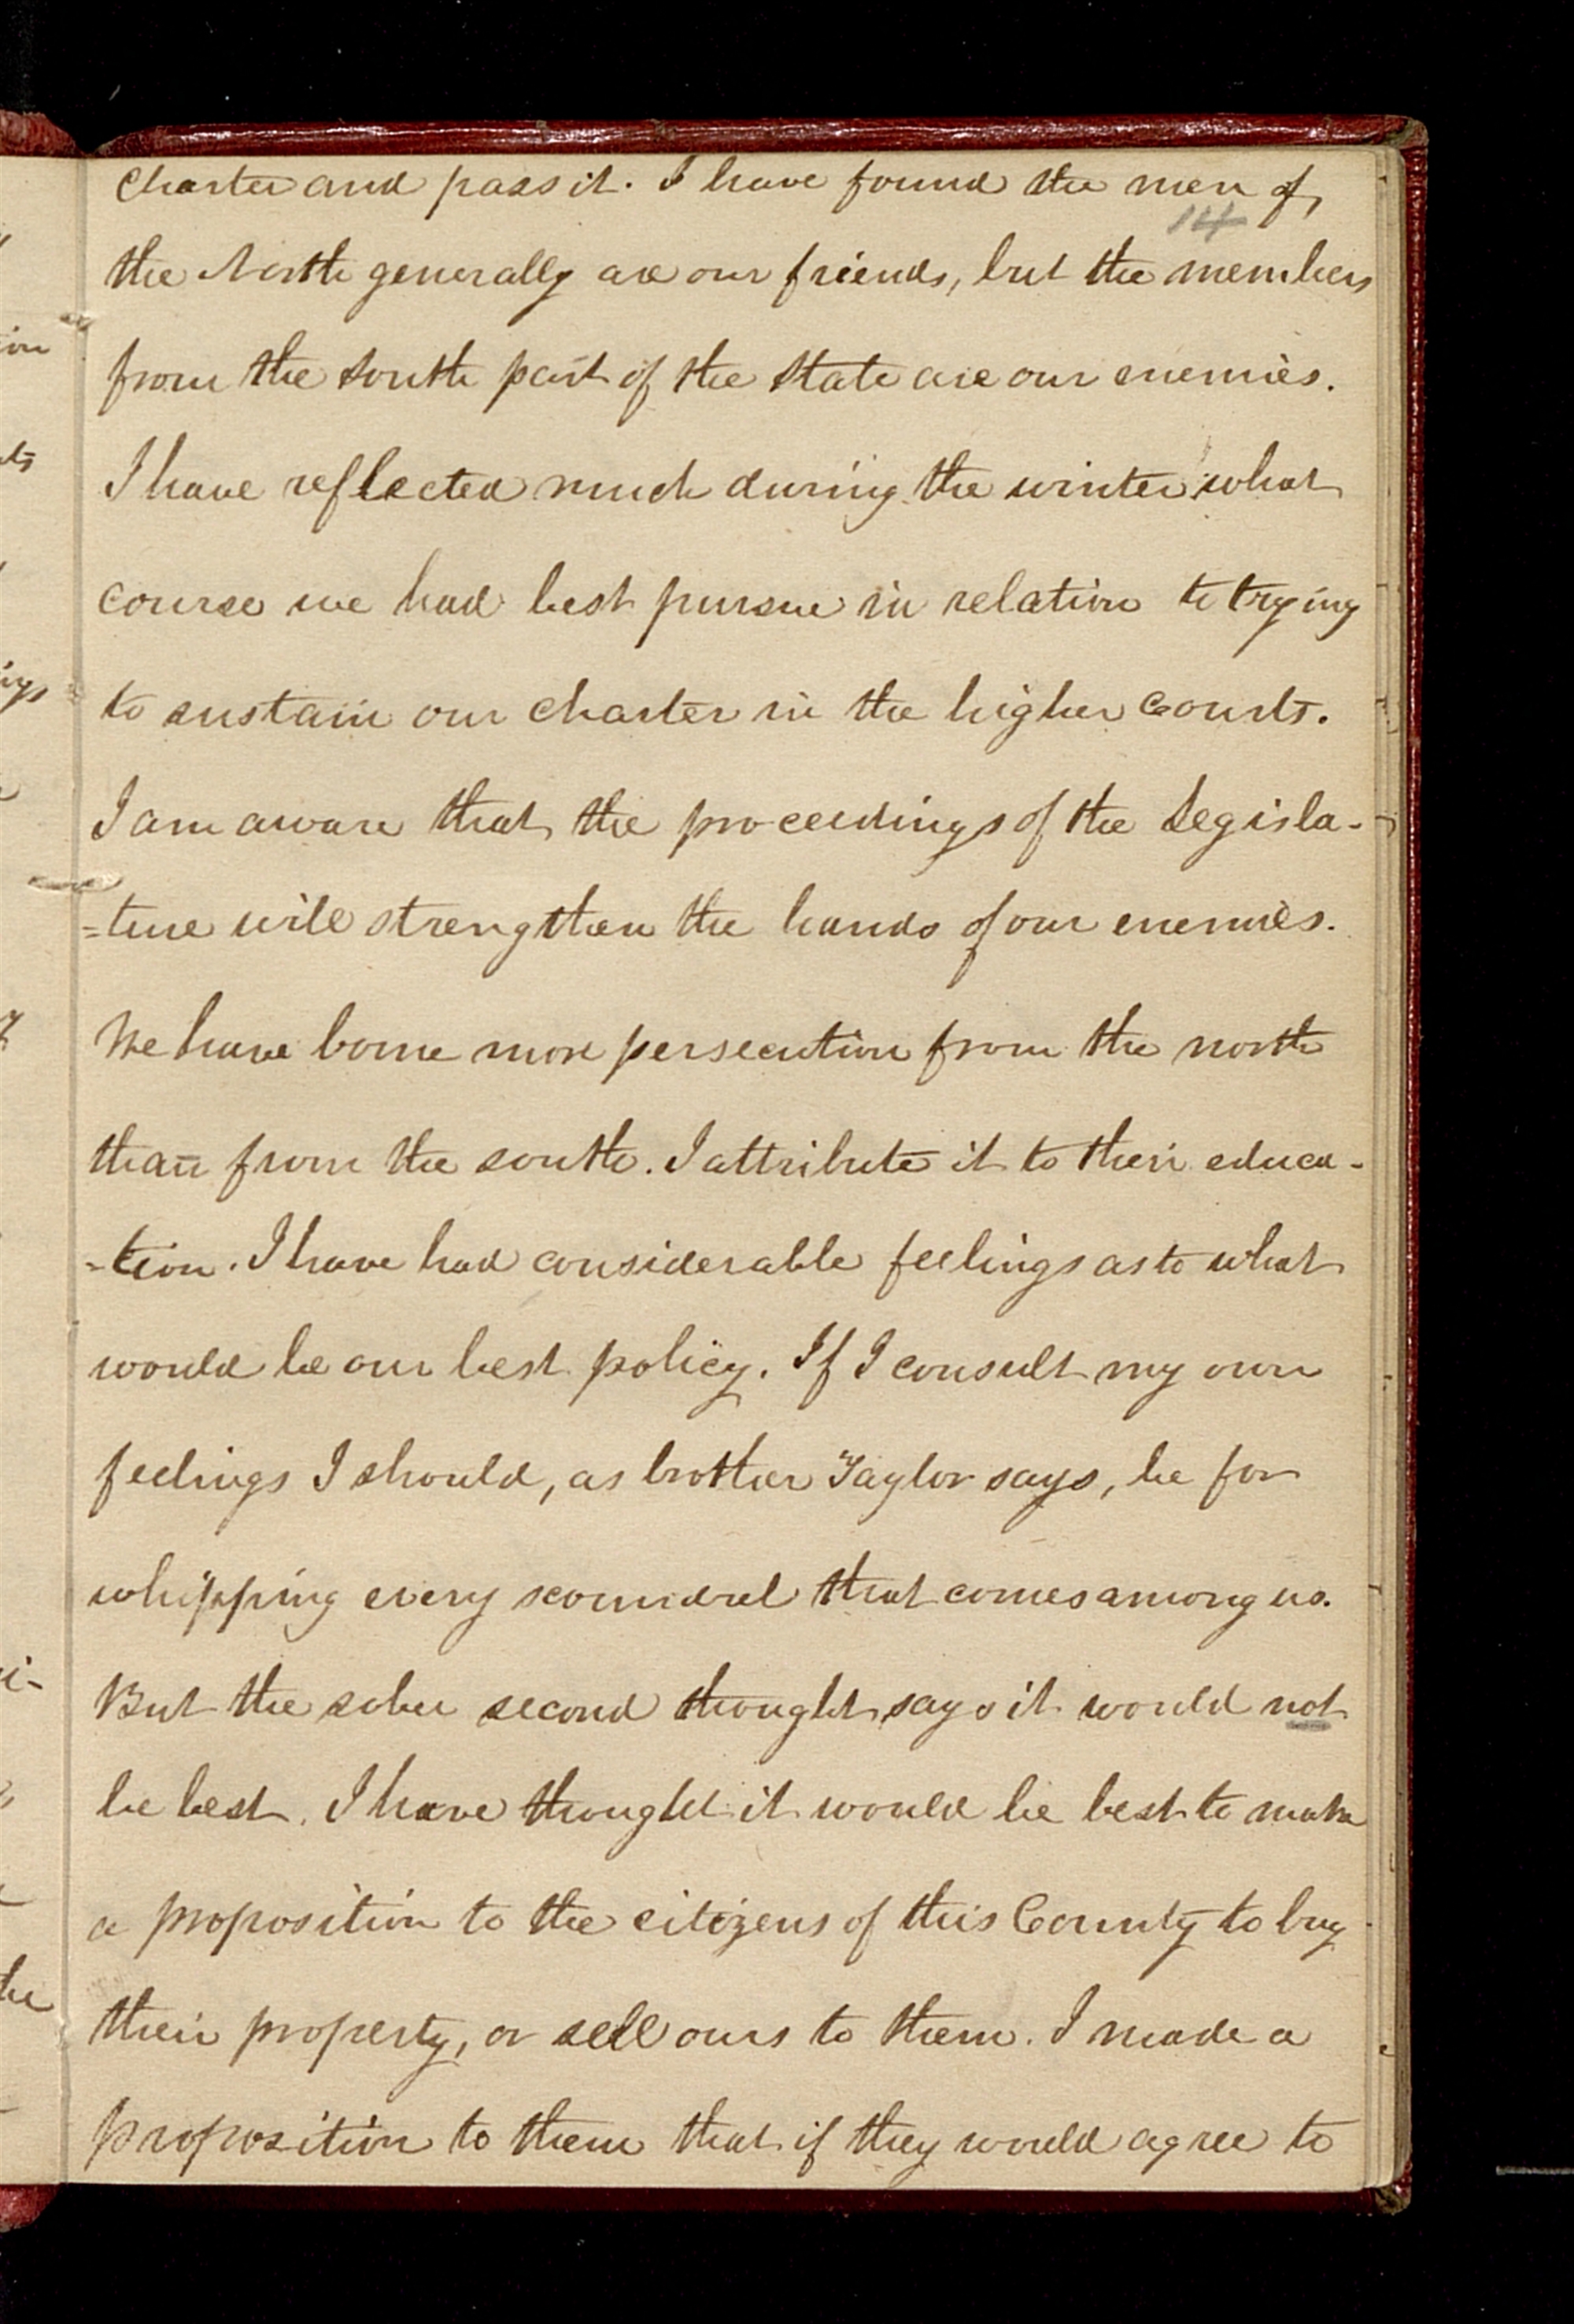 charter and pass it. I have found the men of
14
the North generally are our friends, but the members
from the South part of the State are our enemies.
I have reflected much during the winter what
course we had best pursue in relation to trying
to sustain our charter in the higher Courts.
I am aware that the proceedings of the Legisla-
=ture will strengthen the hands of our enemies.
We have borne more persecution from the north
than from the south. I attribute it to their educa-
-tion. I have had considerable feelings as to what
would be our best policy. If I consult my own
feelings I should, as brother Taylor says, be for
whipping every scoundrel that comes among us.
But the sober second thought says it would not
be best. I have thought it would be best to make
a proposition to the citizens of this County to buy
their property, or sell ours to them. I made a
proposition to them that if they would agree to